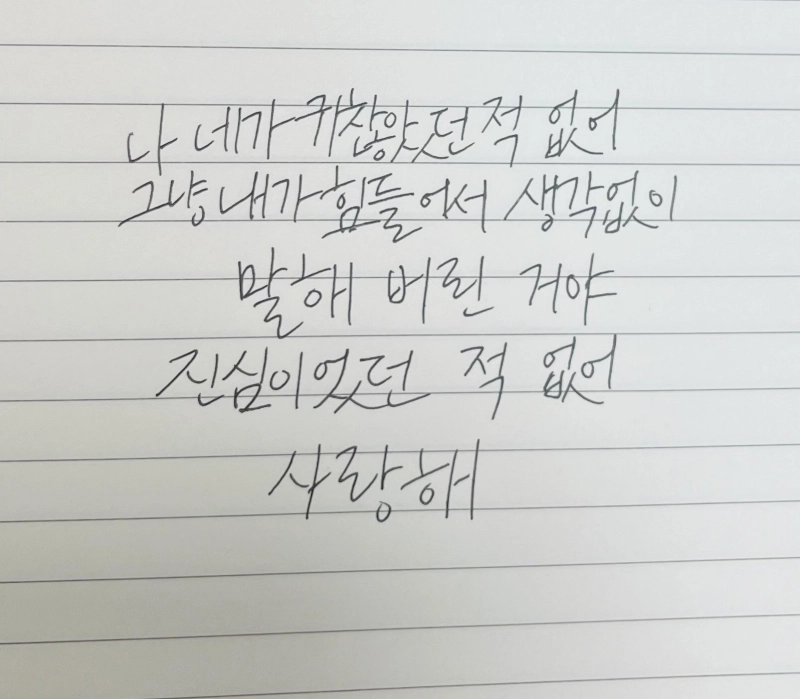 나 네가 귀찮았던 적 없어
그냥 내가 힘들어서 생각없이
말해 버린 거야
진심이었던 적 없어
사랑해